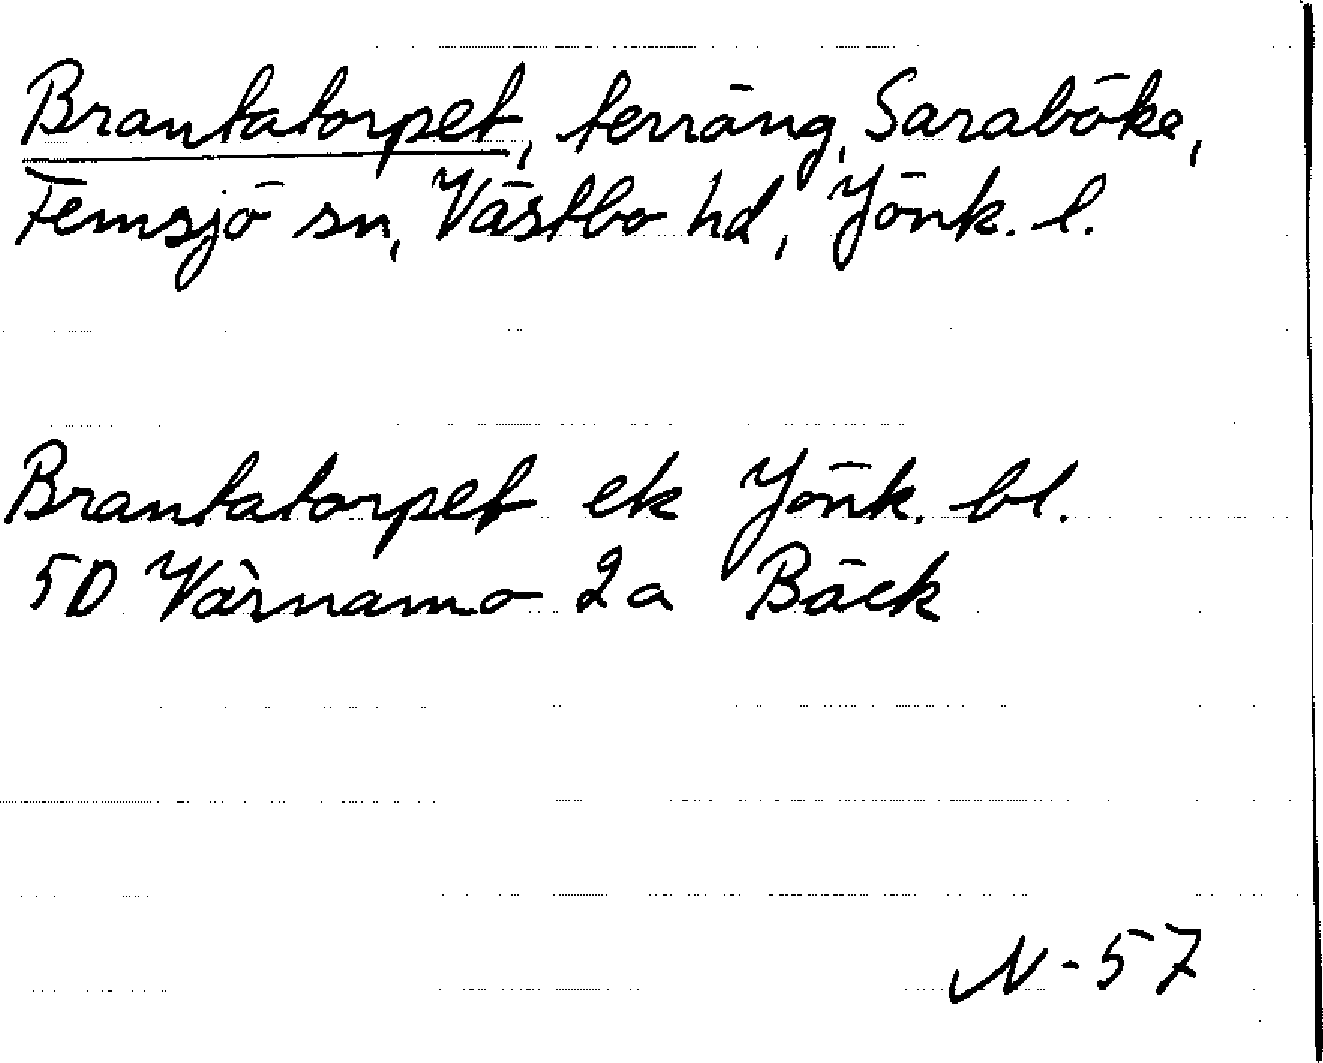 Brantatorpet, terräng, Saraböke,
Femsjö sn, Västbo hd, Jönk. l.
Brantatorpet ek Jönk. bl.
5D Värnamo 2a Bäck
N-57